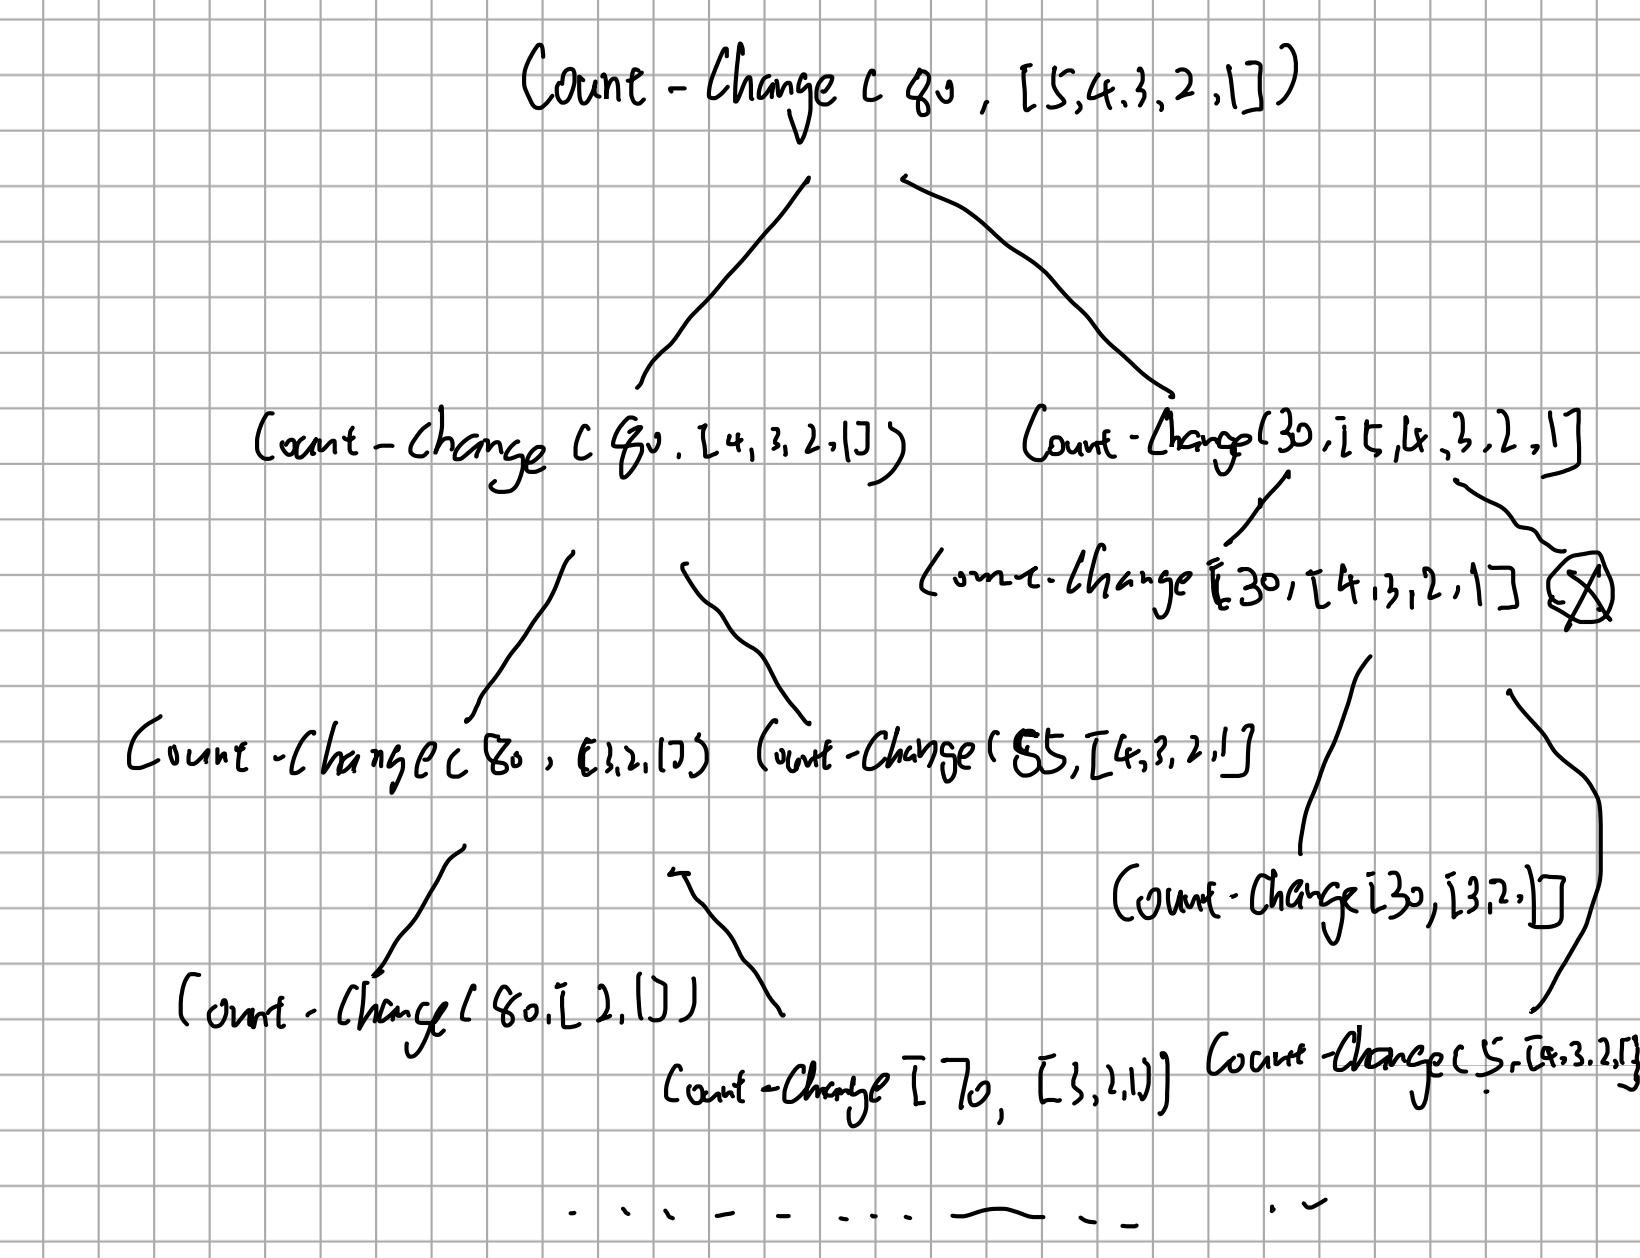 Count-Change ( 80, [5,4,3,2,1])
Count-Change ( 80, [4,3,2,1])
Count-Change(30,[5,4,3,2,1]
Count-Change [30,[4,3,2,1]
Count-Change( 80, [3,2,1])
Count-Change( 55,[4,3,2,1]
Count-Change[30,[3,2,1]
Count-Change( 80,[2,1])
Count-Change [70, [3,2,1)]
Count-Change( 5,[4,3,2,1]